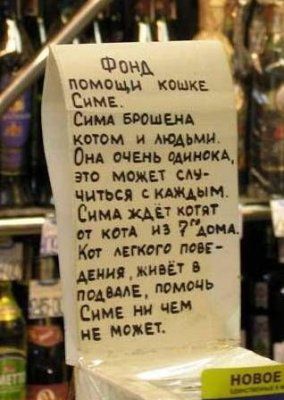 Фонд
помощи кошке
Симе.
Сима брошена
котом и людьми.
Она очень одинока,
это может слу-
читься с каждым.
Сима ждёт котят
от кота из 7го дома.
Кот легкого пове-
дения, живёт в
подвале, помочь
Симе ни чем
не может.
НОВОЕ